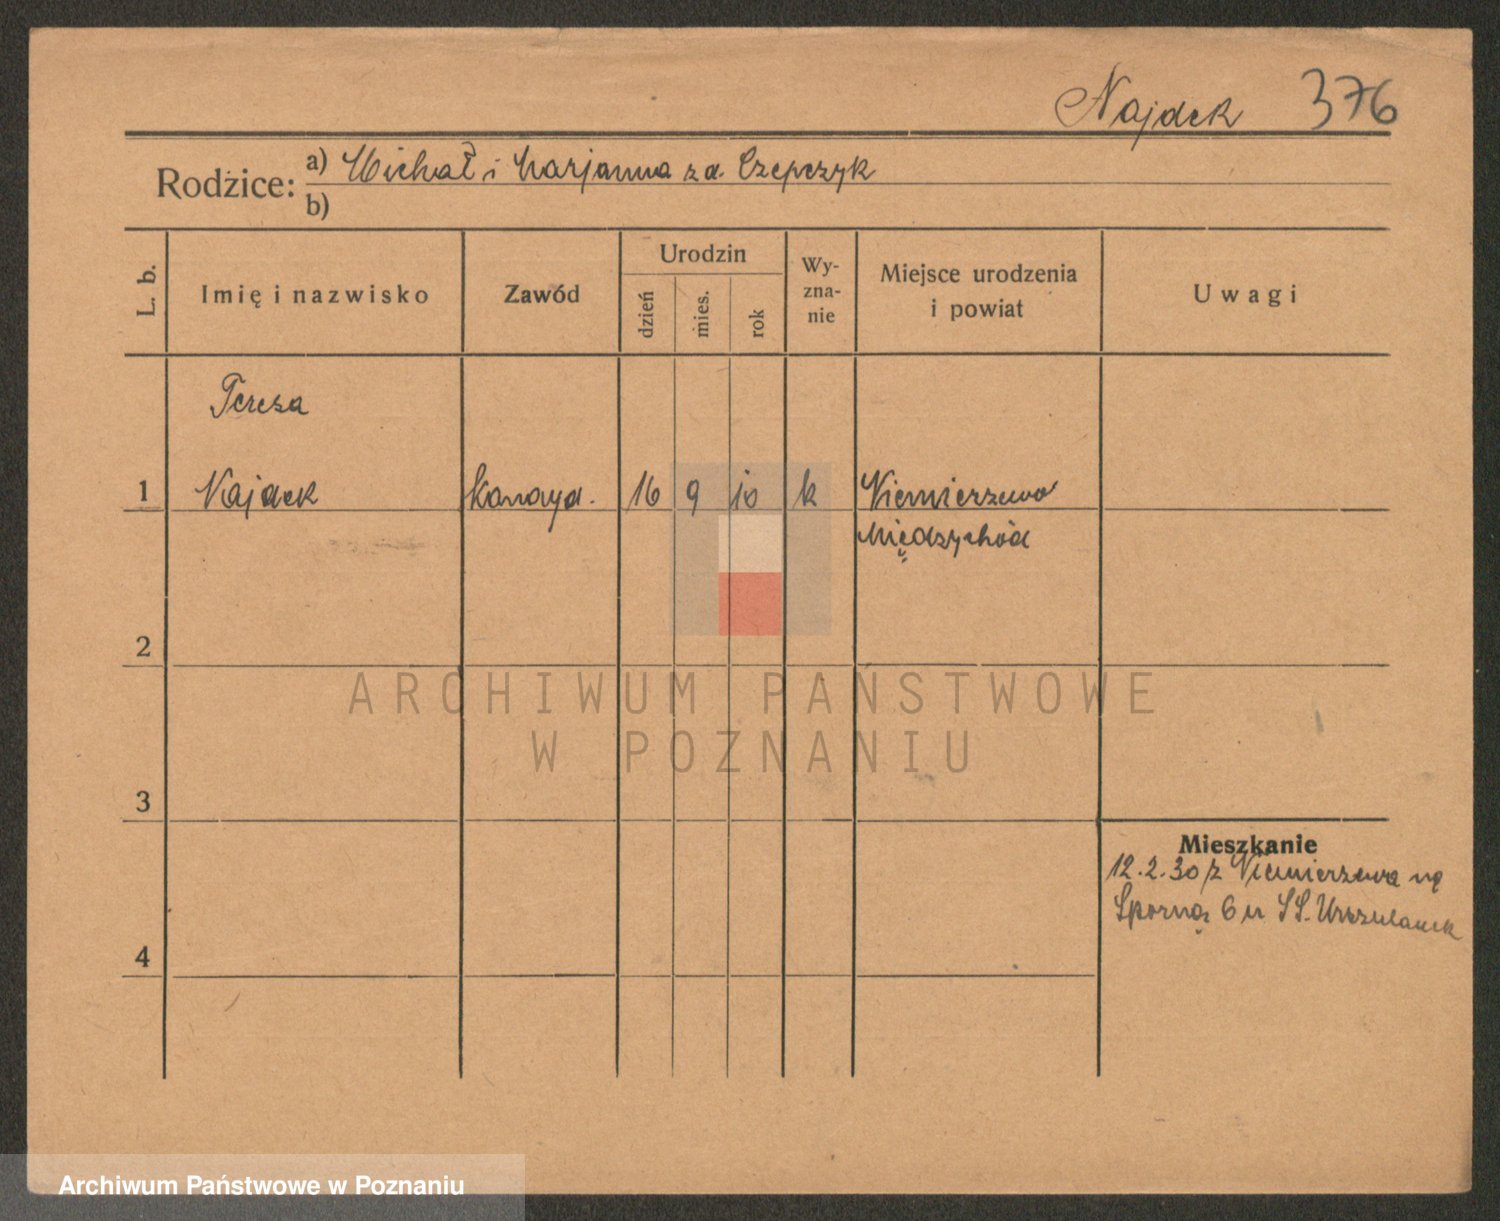 Najdek 376
Rodzice: a) Michał i Marjanna z d. Czepczyk
b)
L. b.
Imię i nazwisko
Zawód
Urodzin
dzień
mies.
rok
Wy-
zna-
nie
Miejsce urodzenia
i powiat
Uwagi
Teresa
1 Najdek 16 9 10 k Niemierzewo
Międzychód
2
3
4
Mieszkanie
12.2.30 z Niemierzewa na
Sporną 6 u SS. Urszulanek
ARCHIWUM PAŃSTWOWE
W POZNANIU
Archiwum Państwowe w Poznaniu